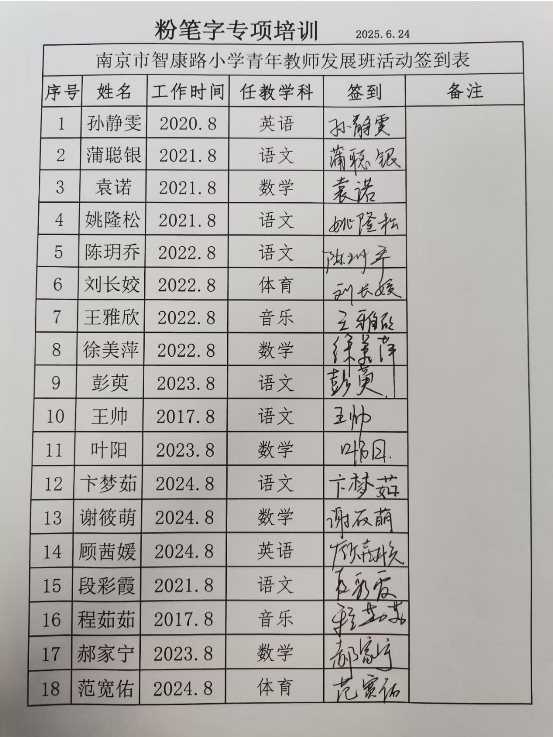 粉笔字专项培训 2025.6.24
南京市智康路小学青年教师发展班活动签到表
序号 姓名 工作时间 任教学科 签到 备注
1 孙静雯 2020.8 英语 孙静雯
2 蒲聪银 2021.8 语文 蒲聪银
3 袁诺 2021.8 数学 袁诺
4 姚隆松 2021.8 语文 姚隆松
5 陈玥乔 2022.8 语文 陈玥乔
6 刘长姣 2022.8 体育 刘长姣
7 王雅欣 2022.8 音乐 王雅欣
8 徐美萍 2022.8 数学 徐美萍
9 彭萸 2023.8 语文 彭萸
10 王帅 2017.8 语文 王帅
11 叶阳 2023.8 数学 叶阳
12 卞梦茹 2024.8 语文 卞梦茹
13 谢筱萌 2024.8 数学 谢筱萌
14 顾茜媛 2024.8 英语 顾茜媛
15 段彩霞 2021.8 语文 段彩霞
16 程茹茹 2017.8 音乐 程茹茹
17 郝家宁 2023.8 数学 郝家宁
18 范宽佑 2024.8 体育 范宽佑